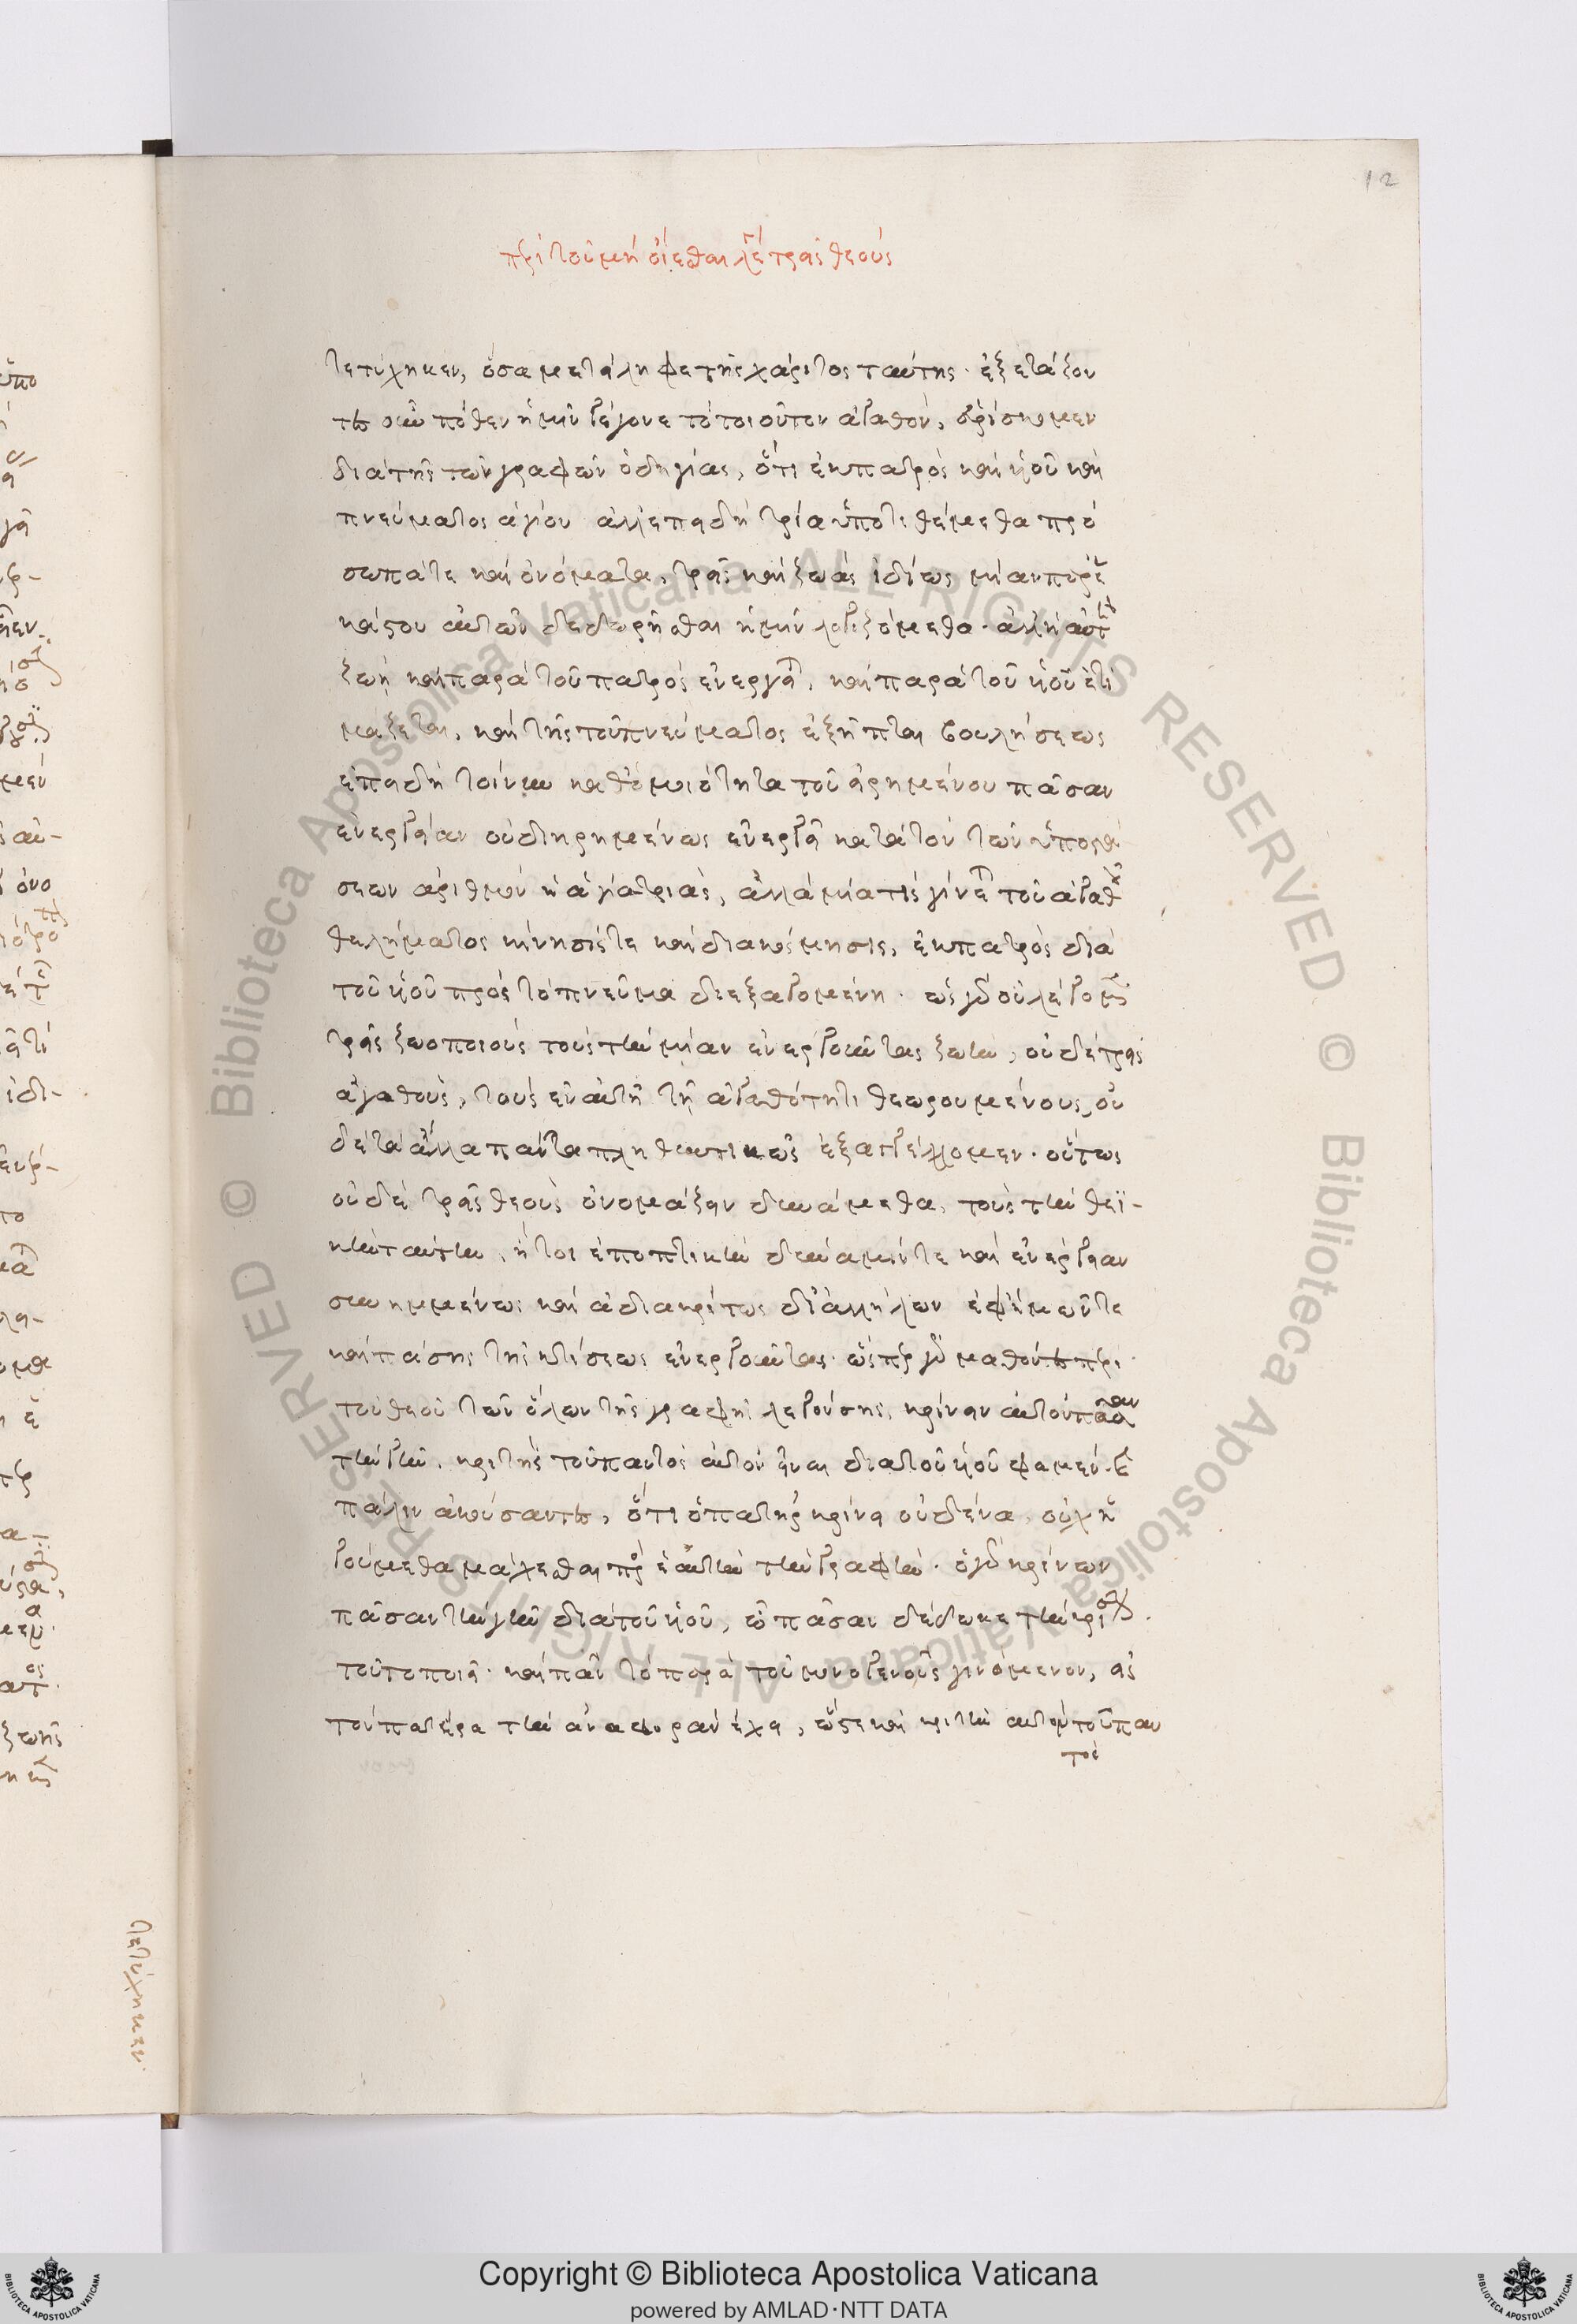 12
περὶ τοῦ μὴ οἴεσθαι λέγειν τρεῖς θεούς
τετύχηκεν, ὅσα μετείληφε τῆς χάριτος ταύτης. ἐξετάζον
τες οὖν πόθεν ἡμῖν γέγονε τὸ τοιοῦτον ἀγαθόν, εὑρίσκομεν
διὰ τῆς τῶν γραφῶν ὁδηγίας, ὅτι ἐκ πατρὸς καὶ υἱοῦ καὶ
πνεύματος ἁγίου ἀλλ' ἐπειδὴ τρία ὑποτιθέμεθα πρό
σωπά τε καὶ ὀνόματα, τρεῖς καὶ ζωὰς ἰδίως μίαν παρ' ἑ
κάστου αὐτῶν δεδωρῆσθαι ἡμῖν λογιζόμεθα. ἀλλ' ἡ αὐτὴ
ζωὴ καὶ παρὰ τοῦ πατρὸς ἐνεργεῖται, καὶ παρὰ τοῦ υἱοῦ ἑτοι
μάζεται, καὶ τῆς τοῦ πνεύματος ἐξῆπται βουλήσεως
ἐπειδὴ τοίνυν καθ' ὁμοιότητα τοῦ εἰρημένου πᾶσαν
ἐνέργειαν οὐ διῃρημένως ἐνεργεῖ κατὰ τὸν τῶν ὑποστά
σεων ἀριθμὸν ἡ ἁγία τριὰς, ἀλλὰ μία τις γίνεται τοῦ ἀγαθοῦ
θελήματος κίνησίς τε καὶ διακόσμησις, ἐκ πατρὸς διὰ
τοῦ υἱοῦ πρὸς τὸ πνεῦμα διεξαγομένη. ὡς γὰρ οὐ λέγομεν
τρεῖς ζωοποιοὺς τοὺς τὴν μίαν ἐνεργοῦντας ζωὴν, οὐδὲ τρεῖς
ἀγαθοὺς, τοὺς ἐν αὐτῇ τῇ ἀγαθότητι θεωρουμένους, οὐ
δὲ τὰ ἄλλα πάντα πληθυντικῶς ἐξαγγέλλομεν. οὕτως
οὐδὲ τρεῖς θεοὺς ὀνομάζειν δυνάμεθα, τοὺς τὴν θεϊ-
κὴν ταύτην, ἤτοι ἐποπτικὴν δύναμίν τε καὶ ἐνέργειαν
συνημμένως καὶ ἀδιακρίτως δι' ἀλλήλων ἐφ' ἡμῶν τε
καὶ πάσης τῆς κτίσεως ἐνεργοῦντας. ὥσπερ γὰρ μαθόντες περὶ
τοῦ θεοῦ τῶν ὅλων τῆς γραφῆς λεγούσης, κρίνειν αὐτὸν πᾶσαν
τὴν γῆν, κριτὴς τοῦ παντὸς αὐτὸν εἶναι διὰ τοῦ υἱοῦ φαμέν. καὶ
πάλιν ἀκούσαντες, ὅτι ὁ πατὴρ κρίνει οὐδένα, οὐχ ἡ
γούμεθα μάχεσθαι πρὸς ἑαυτὴν τὴν γραφήν. ὁ γὰρ κρίνων
πᾶσαν τὴν γῆν διὰ τοῦ υἱοῦ, ᾧ πᾶσαν δέδωκε τὴν κρίσιν.
τοῦτο ποιεῖ. καὶ πᾶν τὸ παρὰ τοῦ μονογενοῦς γινόμενον, εἰς
τὸν πατέρα τὴν ἀναφορὰν ἔχει, ὥστε καὶ κριτὴν αὐτὸν τοῦ παν
τὸς
τετύχηκεν.
Copyright © Biblioteca Apostolica Vaticana
powered by AMLAD·NTT DATA